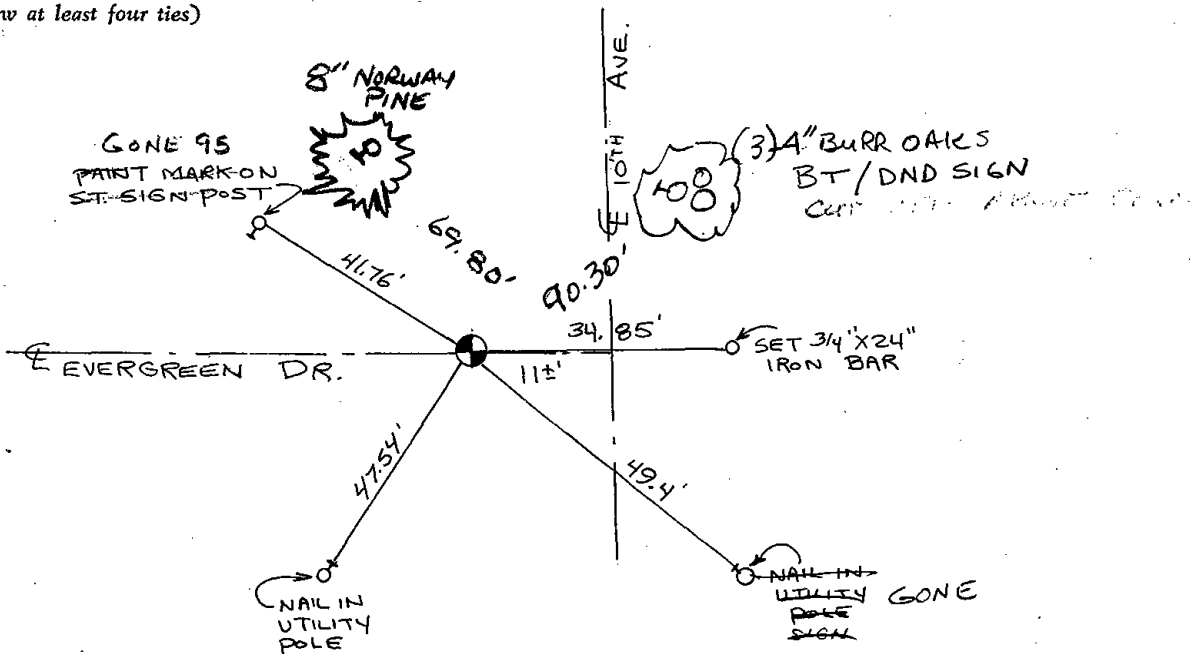 w at least four ties)
8" NORWAY
PINE
GONE 95
PAINT MARK ON
ST. SIGN POST
℄ 10TH AVE.
(3) 4" BURR OAKS
BT / DND SIGN
69.80'
90.30'
41.76'
34.85'
℄ EVERGREEN DR.
11±'
SET 3/4"X24"
IRON BAR
47.54'
49.4'
NAIL IN
UTILITY
POLE
NAIL IN
UTILITY
POLE
SIGN
GONE